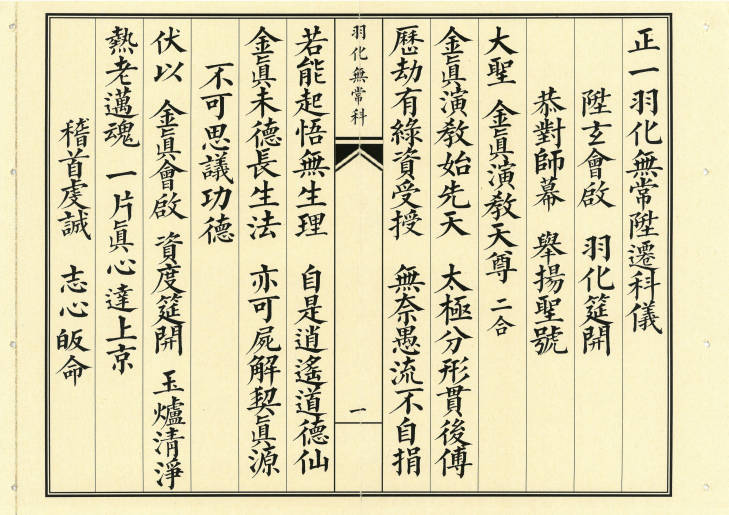 正一羽化無常陞遷科儀
陞玄會啟　羽化筵開
恭對師幕　舉揚聖號
大聖　金眞演教天尊　二合
金眞演教始先天　太極分形貫後傳
歷劫有緣資受授　無奈愚流不自捐
羽化無常科
一
若能起悟無生理　自是逍遙道德仙
金眞未德長生法　亦可屍解契眞源
不可思議功德
伏以　金眞會啟　資度筵開　玉爐清淨
熱老邁魂　一片眞心達上京
稽首虔誠　志心皈命